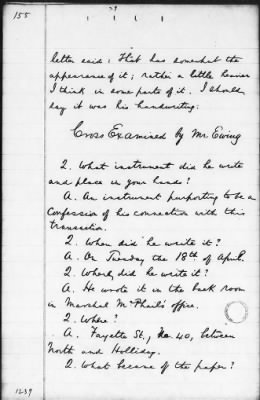 155
letter said: that has somewhat the
appearance of it; rather a little heavier
I think in some parts of it. I should
say it was his handwriting.
Cross Examined by Mr Ewing
Q. What instrument did he write
and place in your hands?
A. An instrument purporting to be a
Confession of his connection with this
transactin.
Q. When did he write it?
A. On Tuesday the 18th of April.
Q. Where did he write it?
A. He wrote it in the back room
in Marshal McPhail's office.
Q. Where?
A. Fayette St., No. 40, between
North and Holliday.
Q. What became of the paper?
1239